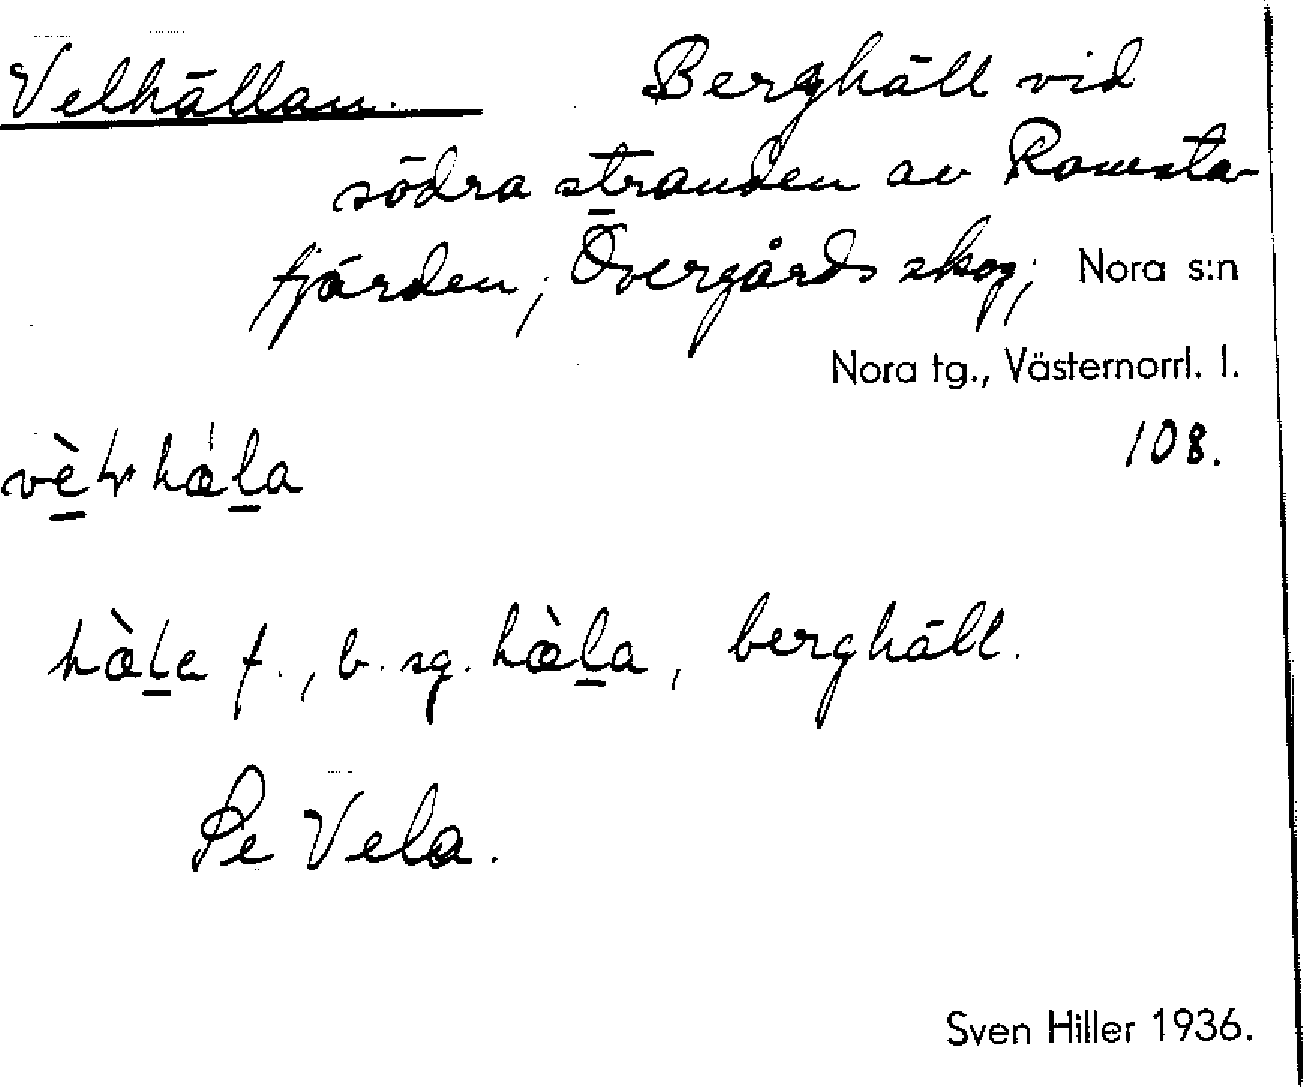 Velhällan. Berghäll vid
södra stranden av Ramsta-
fjärden; Övergårds skog; Nora s:n
Nora tg., Västernorrl. l.
108.
hæ̀la
hæ̀la f., b. sg. hæ̀la, berghäll.
Se Vela.
Sven Hiller 1936.